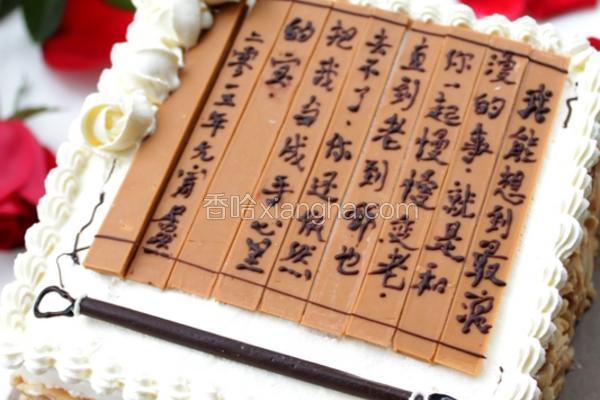 我能想到最浪
漫的事.就是和
你一起慢慢变老.
直到老到那也
去不了.你还依然
把我当成手心里
的宝.
二零一五年元宵
香哈xiangha.com